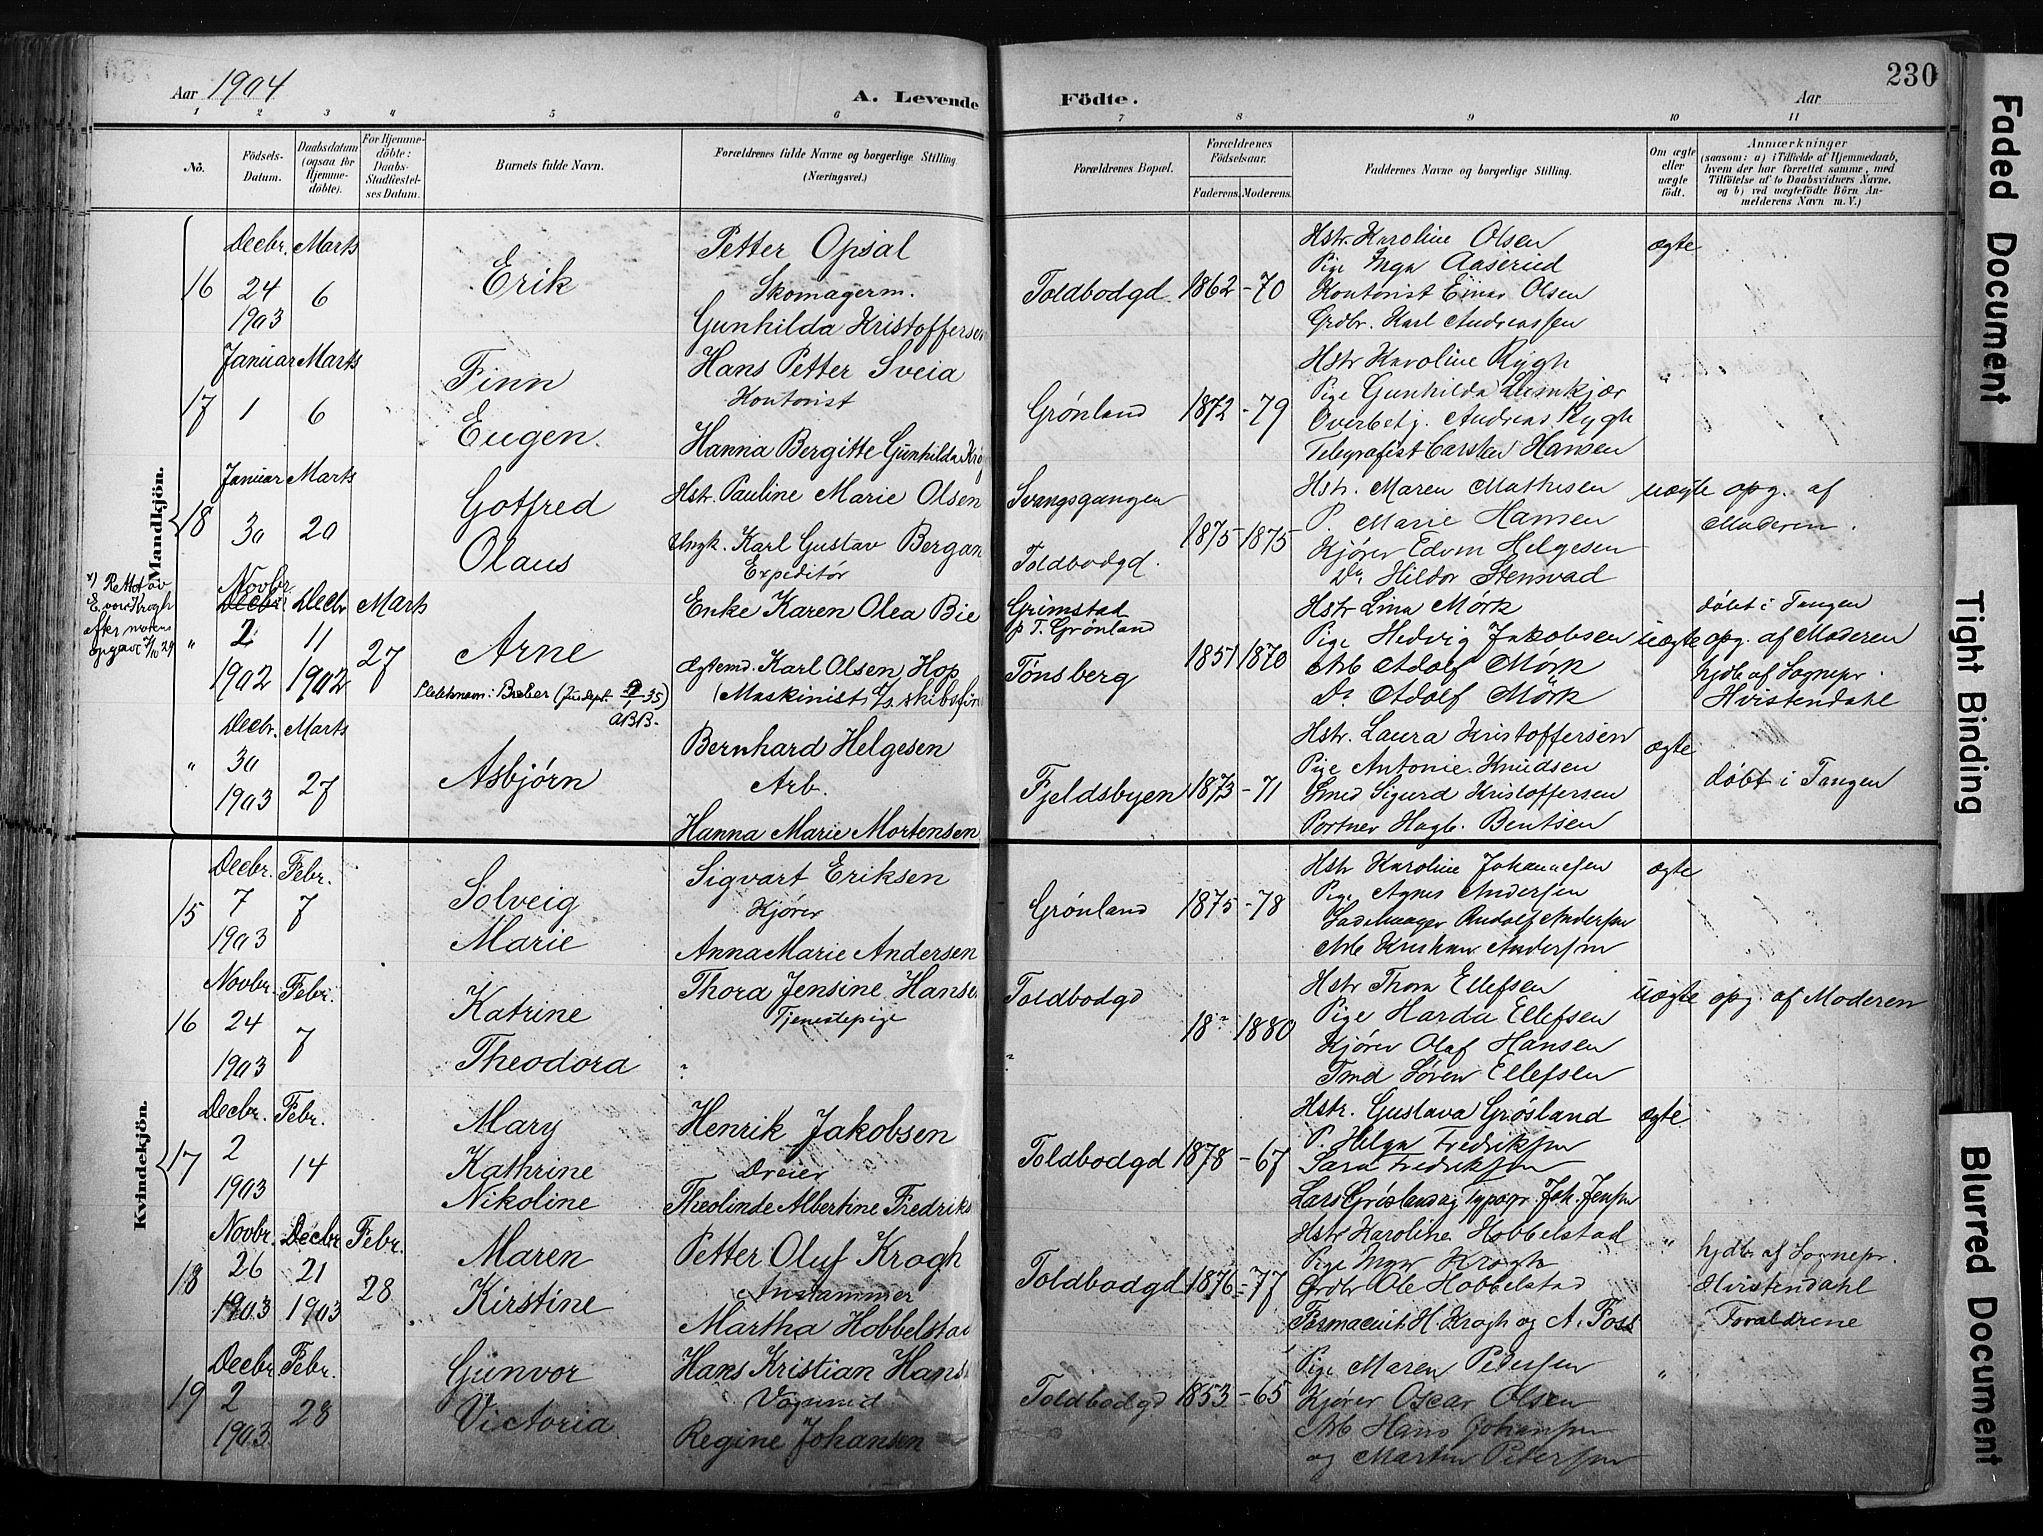 Aar 1904
A. Levende Födte.
Aar
230
1 2 3 4 5 6 7 8 9 10 11
No.
Födsels-Datum.
Daabsdatum (ogsaa for Hjemme-döbte).
For Hjemme-döbte: Daabs-Stadfæstel-ses Datum.
Barnets fulde Navn.
Forældrenes fulde Navne og borgerlige Stilling (Næringsvei.)
Forældrenes Bopæl.
Forældrenes Födselsaar.
Faderens. Moderens.
Faddernes Navne og borgerlige Stilling.
Om ægte eller uægte födt.
Anmærkninger
(saasom: a) i Tilfælde af Hjemmedaab,
hvem der har forrettet samme, med
Tilföielse af to Daabsvidners Navne,
og b) ved uægtefödte Börn An-
melderens Navn m. V.)
Mandkjön.
16
Decbr. 24 1903
Marts 6
Erik
Petter Opsal
Skomagerm.
Gunhilda Kristoffersen
Toldbodgd.
1862 - 70
Hstr. Karoline Olsen
Pige Inga Aaserud
Kontorist Einar Olsen
Grdbr. Karl Andreassen
ægte
17
Januar 1
Marts 6
Finn
Eugen.
Hans Petter Sveia
Kontorist
Hanna Bergitte Gunhilda
Grønland
1872 - 79
Hstr Karoline Rygh
Pige Gunhilda
Overbetj. Andreas Rygh
Telegrafist Carsten Hansen
"
18
Januar 30
Marts 20
Gotfred
Olaus
Hstr. Pauline Marie Olsen
Ungk. Karl Gustav Bergan
Expeditör
Svangsgangen
Toldbodgd.
1875 - 1875
Hstr. Maren Mathisen
P. Marie Hansen
Kjører Edvin Helgesen
Do Hildor Stensvad
uægte
opg. af
Moderen.
Rettet av
efter
"
Novbr. Decbr. 2 1902
Decbr 11 1902
Marts 27
Arne
Slektsnavn: Breier (Jusdept. 35)
aBB.
Enke Karen Olea Bie
Ægtemd. Karl Olsen Hop
(Maskinist
Grimstad
p T. Grönland
Tønsberg
1851 1870
Hstr Lina Mørk
Pige Hedvig Jakobsen
Arb Adolf Mørk
Do Adolf Mørk
uægte
døbt i Tangen
opg. af Moderen
hjdb af Sognepr.
Hvistendahl
"
Decbr. 30 1903
Marts 27
Asbjørn
Bernhard Helgesen
Arb.
Hanna Marie Mortensen
Fjeldsbyen
1873 - 71
Hstr. Laura Kristoffersen
Pige Antonie Knudsen
Smed Sigurd Kristoffersen
Portner Hagb. Bentsen
ægte
døbt i Tangen
Kvindekjön.
15
Decbr. 7 1903
Febr. 7
Solveig
Marie
Sigvart Eriksen
Kjører
Anna Marie Andersen
Grønland
1875 - 78
Hstr Karoline Johannesen
Pige Agnes Andersen
Sadelmager Rudolf Andersen
Arb Kristian Andersen
ægte
16
Novbr. 24 1903
Febr. 7
Katrine
Theodora
Thora Jensine Hansen
Tjenestepige
?
Toldbodgd
?
18 1880
Hstr Thora Ellefsen
Pige Harda Ellefsen
Kjører Olaf Hansen
Tmd Søren Ellefsen
uægte
opg. af Moderen
17
Decbr. 2 1903
Febr. 14
Mary
Kathrine
Nikoline
Henrik Jakobsen
Dreier
Theolinde Albertine Fredriks
Toldbodgd
1878 - 67
Hstr. Gustava Grøsland
P. Helga Fredriksen
Sara Fredriksen
Lars Grøsland og Typogr. Joh. Jensen
ægte
18
Novbr. 26 1903
Decbr 21 1903
Febr. 28
Maren
Kirstine
Petter Oluf Krogh
Martha Hobbelstad
Toldbodgd
1876 - 77
Hstr Karoline Hobbelstad
Pige Krogh
Grdbr Ole Hobbelstad
Farmaceut H. Krogh og A. Foss
"
hjdbt af Sognepr.
Hvistendahl
Forældrene
19
Decbr 2 1903
Febr. 28
Gunvor
Victoria
Hans Kristian Hans
Vognmd
Regine Johansen
Toldbodgd
1853 - 65
Pige Maren Pedersen
Kjører Oscar Olsen
Arb Hans Johansen
og Martin Petersen
"
Faded Document
Tight Binding
Blurred Document